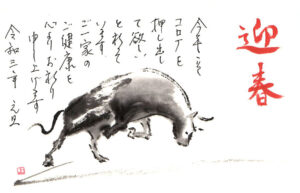 迎春
今年こそ
コロナを
押し出し
て欲しい
と祈って
います
ご一家の
ご健康を
心よりお祈り
申し上げます
令和三年 元旦